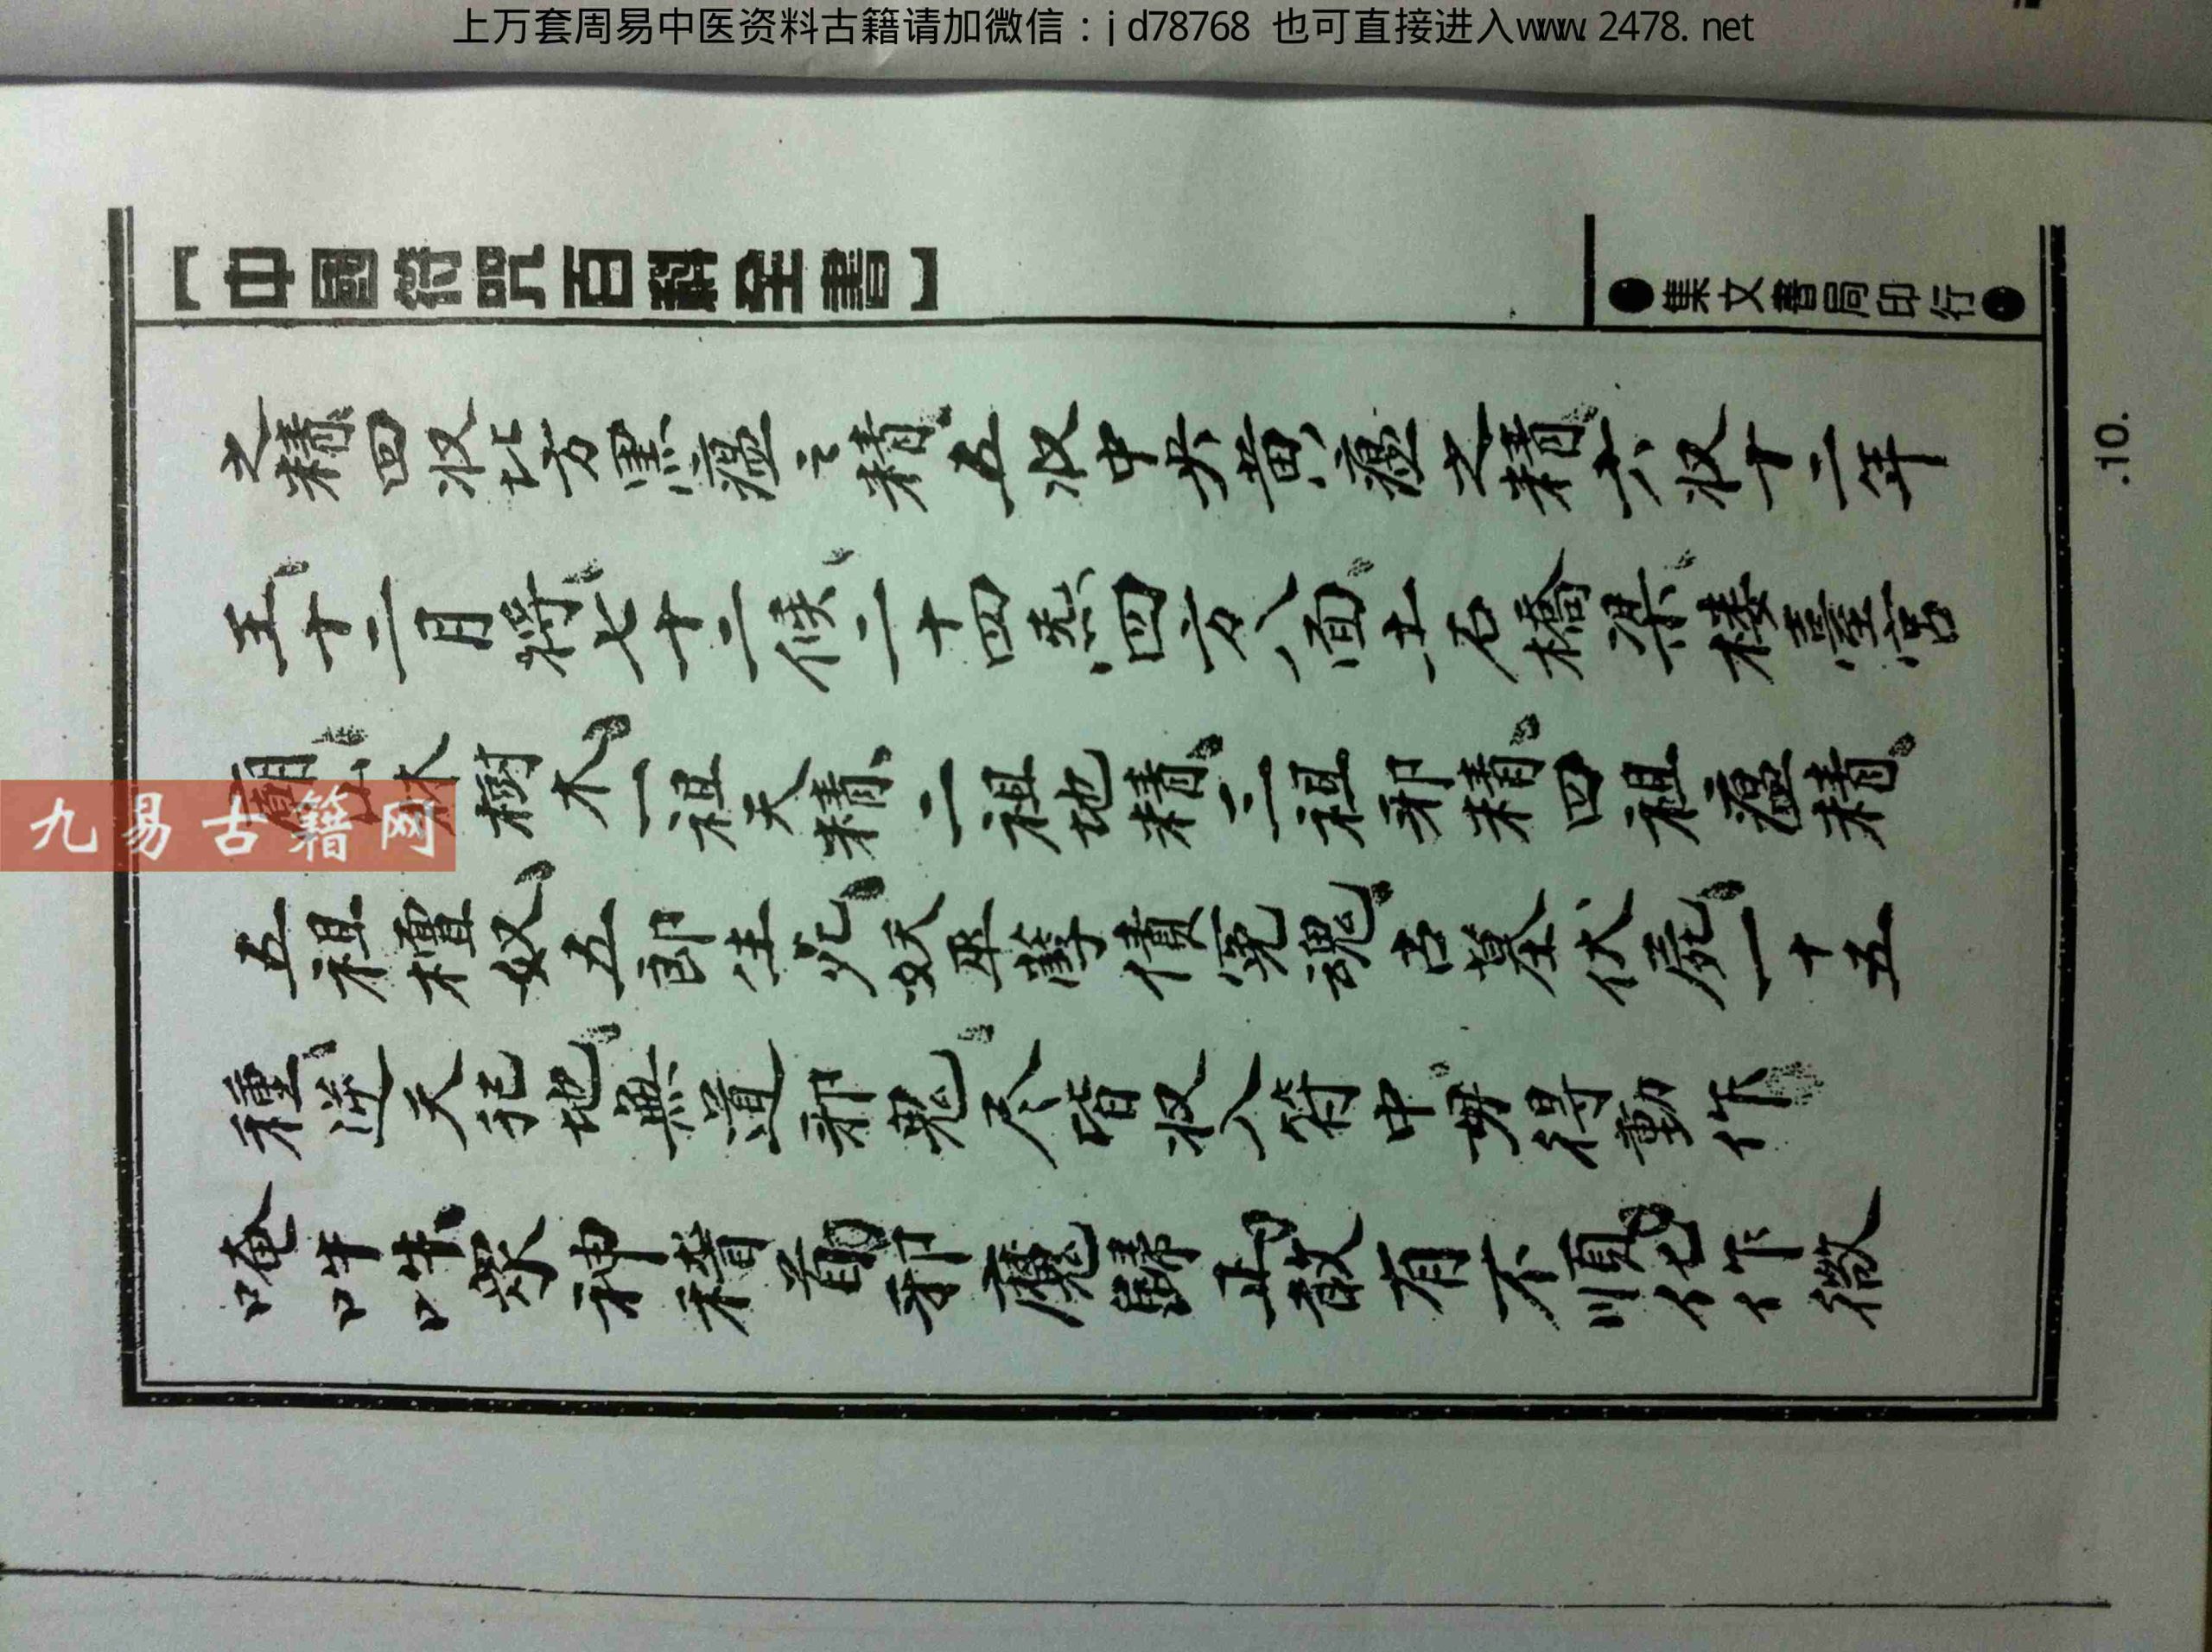 上万套周易中医资料古籍请加微信：jd78768 也可直接进入www.2478.net
【中國符咒百科全書】
●集文書局印行●
之精四收北方黑瘟之精五收中央黃瘟之精六收十二年
王十二月將七十二候二十四炁四方八面土石橋梁楼臺宮
廟山林樹木一祖天精二祖地精三祖邪精四祖瘟精
五祖檀奴五郎生死妖巫孽債冤魂古墓伏屍一十五
種逆天地無道邪鬼尽皆收入符中毋得動作
唵吽吽眾神稽首邪魔歸正敢有不順化作微
.10.
九易古籍网